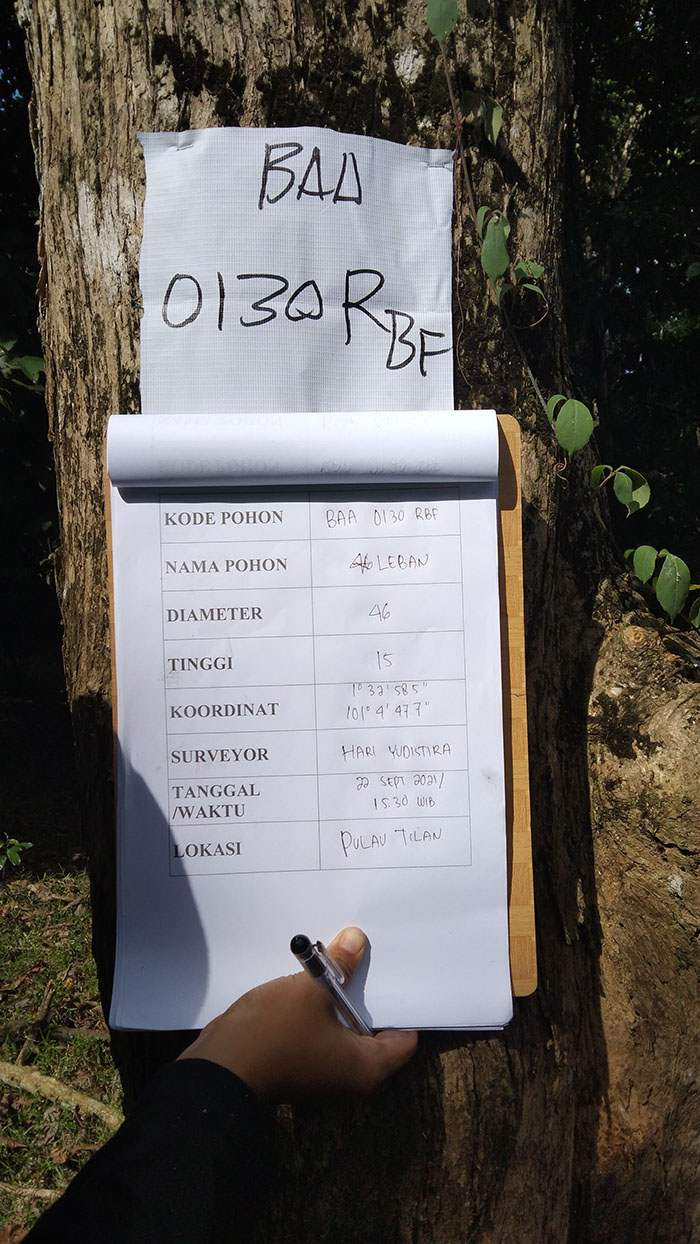 BAA
0130 RBF
KODE POHON BAA 0130 RBF
NAMA POHON LEBAN
DIAMETER 46
TINGGI 15
KOORDINAT 1° 32' 58.5"
101° 4' 47.7"
SURVEYOR HARI YUDISTIRA
TANGGAL 22 SEPT 2021/
/WAKTU 15.30 WIB
LOKASI PULAU TILAN